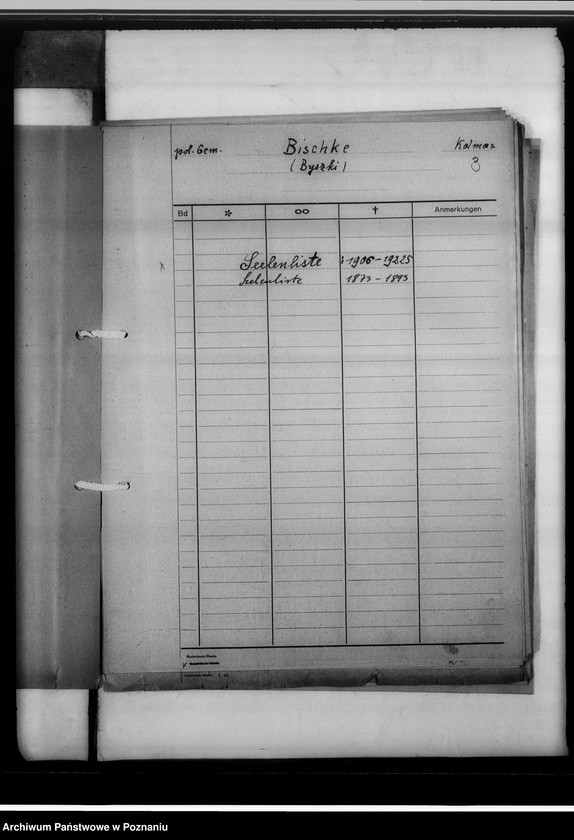 pol. Gem. Bischke Kolmar
(Byszki) 3
Bd * ∞ † Anmerkungen
Seelenliste : 1906-
Seelenliste 1873 - 1893
Archiwum Państwowe w Poznaniu